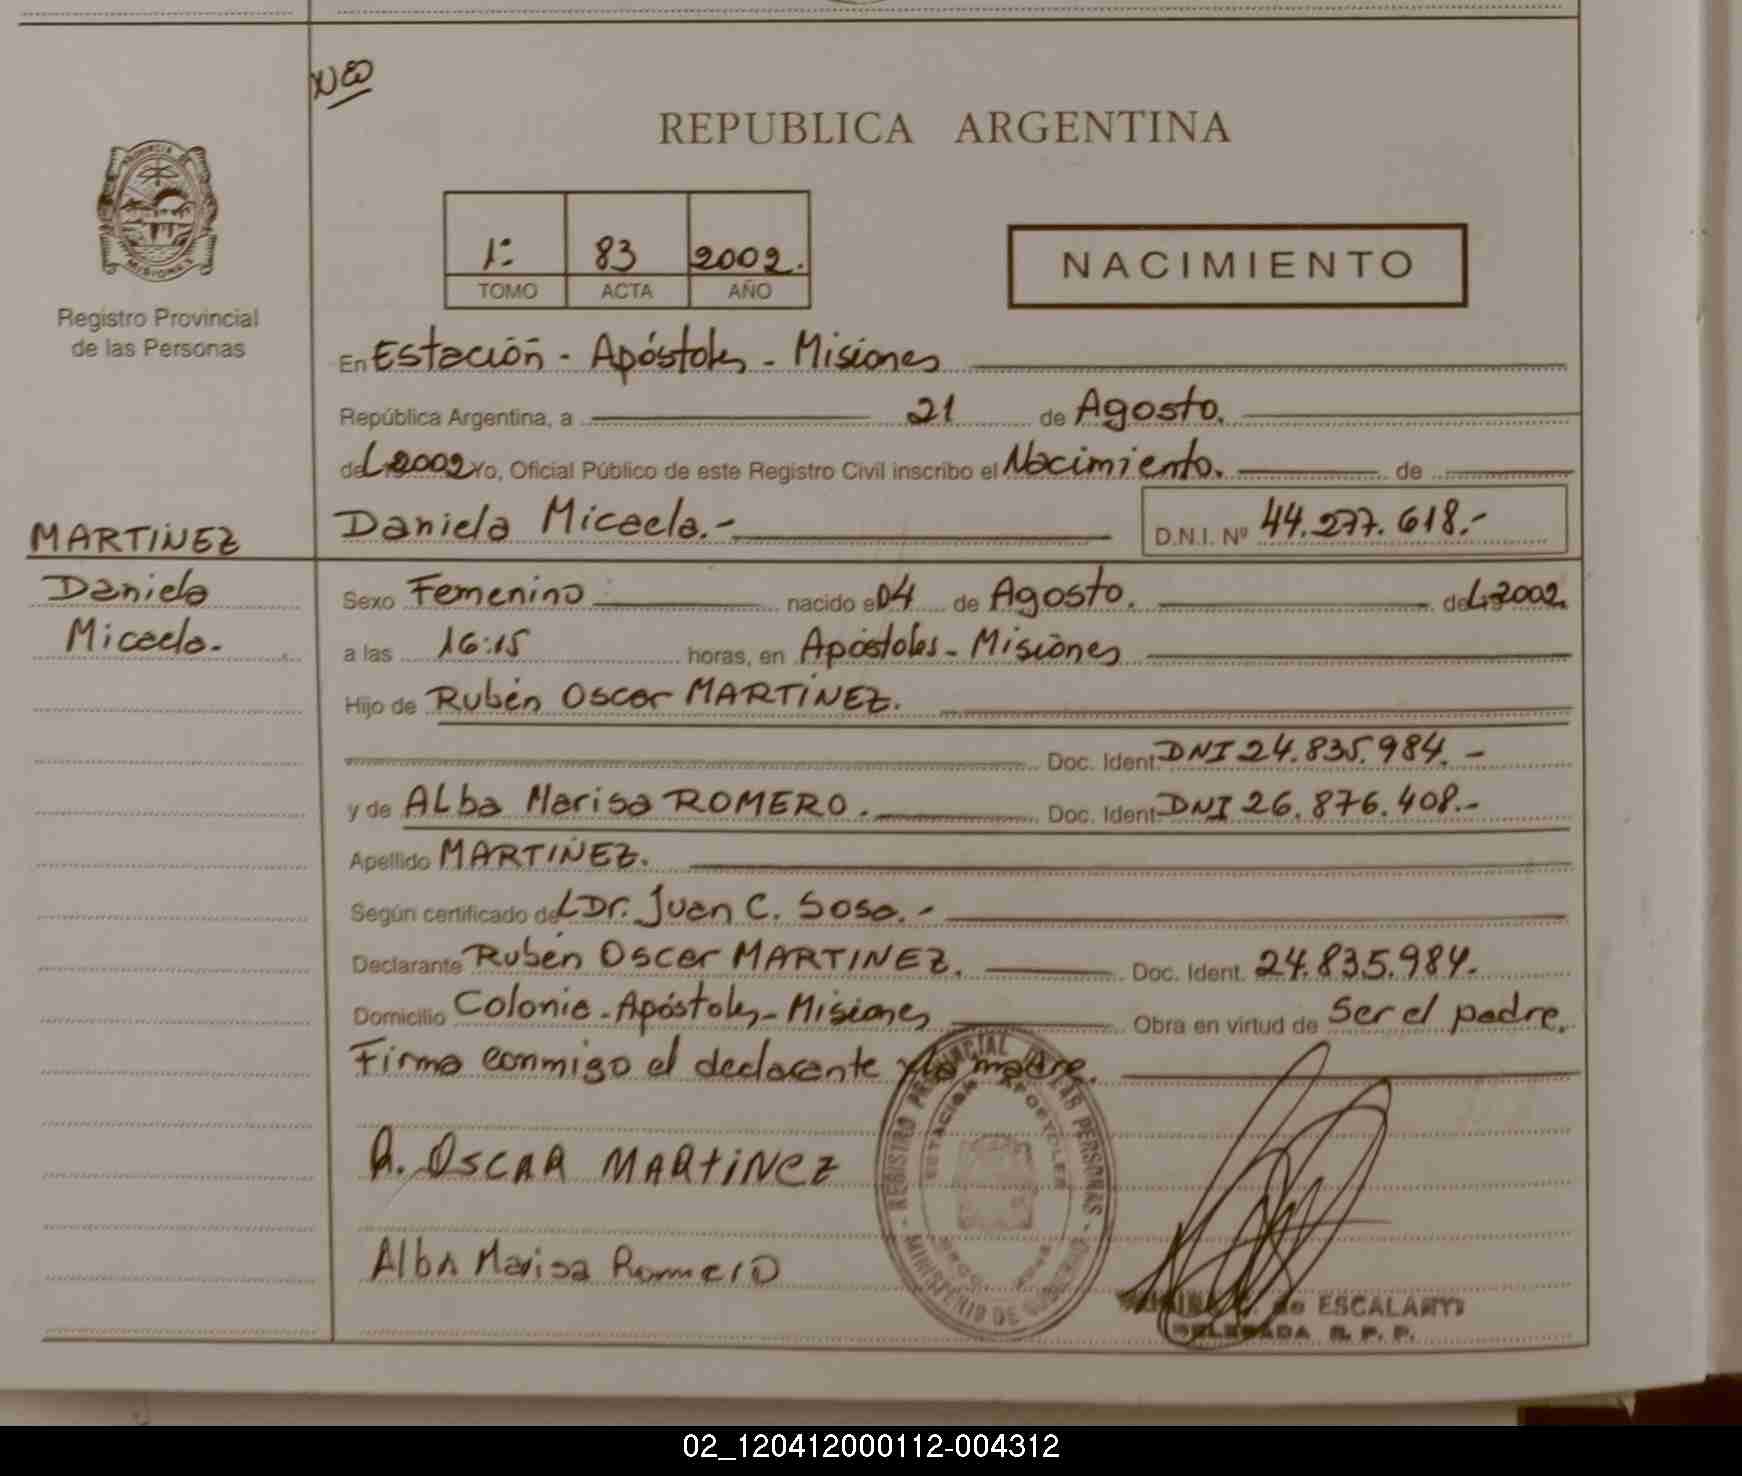 REPUBLICA ARGENTINA
PROVINCIA DE
MISIONES
Registro Provincial
de las Personas
1: 83 2002.
TOMO ACTA AÑO
NACIMIENTO
En Estación - Apóstoles - Misiones
República Argentina, a 21 de Agosto.
del 2002 Yo, Oficial Público de este Registro Civil inscribo el Nacimiento. de
MARTINEZ
Daniela
Micaela.
Daniela Micaela.- D.N.I. Nº 44.277.618.-
Sexo Femenino nacido el 04 de Agosto. del 2002.
a las 16:15 horas, en Apóstoles - Misiones
Hijo de Rubén Oscar MARTINEZ.
Doc. Ident. DNI 24.835.984.-
y de Alba Marisa ROMERO. Doc. Ident. DNI 26.876.408.-
Apellido MARTINEZ.
Según certificado del Dr. Juan C. Sosa.-
Declarante Rubén Oscar MARTINEZ. Doc. Ident. 24.835.984.
Domicilio Colonia - Apóstoles - Misiones Obra en virtud de Ser el padre.
Firma conmigo el declarante y la madre.
R. OSCAR MARTINEZ
Alba Marisa Romero
REGISTRO PROVINCIAL DE LAS PERSONAS
ESTACION APOSTOLES
MINISTERIO DE GOBIERNO
de ESCALANTE
DELEGADA R. P. P.
02_120412000112-004312